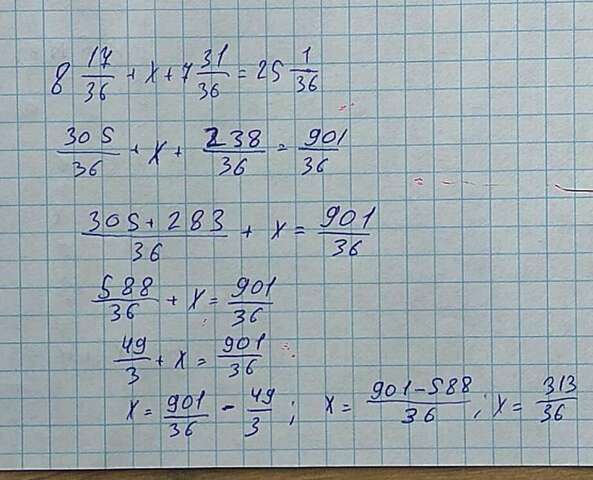 8 17/36 + x + 7 31/36 = 25 1/36
305/36 + x + 238/36 = 901/36
305 + 283/36 + x = 901/36
588/36 + x = 901/36
49/3 + x = 901/36
x = 901/36 - 49/3 ; x = 901 - 588/36 ; x = 313/36